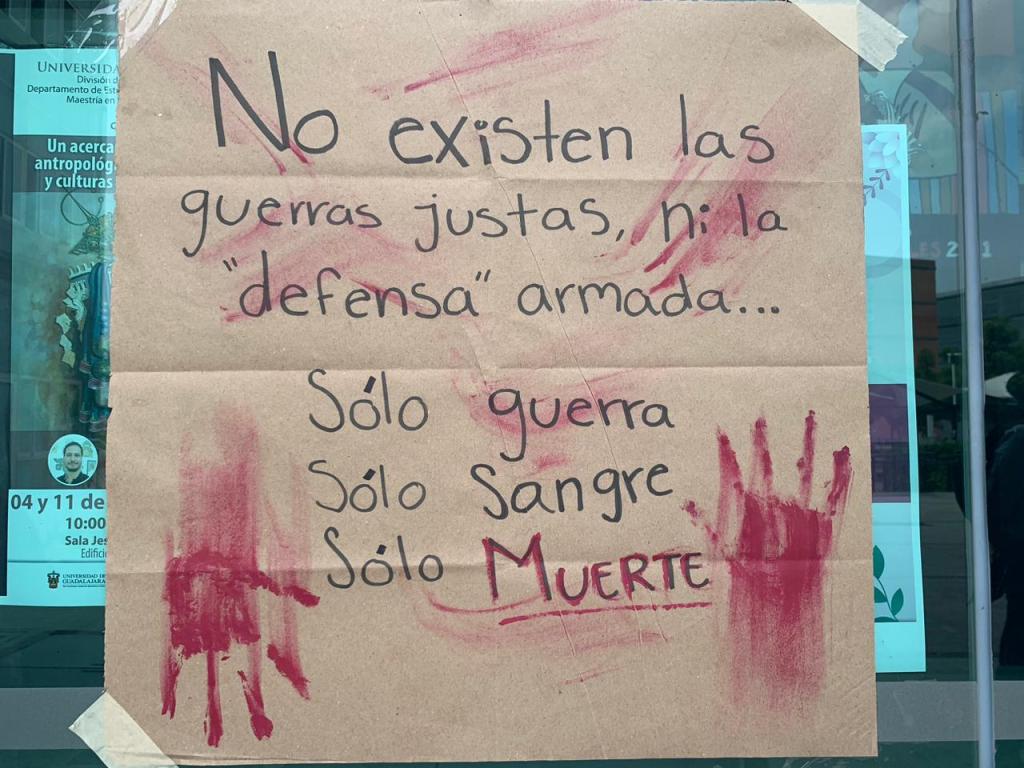 No existen las
guerras justas, ni la
"defensa" armada...
Sólo guerra
Sólo Sangre
Sólo MUERTE
UNIVERSIDA
División d
Departamento de Est
Maestría en
Un acerca
antropológ
y culturas
04 y 11 de
10:00
Sala Jes
Edific
UNIVERSIDAD DE
GUADALAJARA